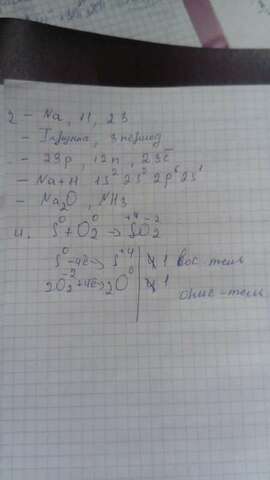 2 – Na, 11, 23
– I группа, 3 период
– 23p, 12n, 23ē
– Na+11 1s² 2s² 2p⁶ 2s¹
– Na₂O, NH₃
4. S⁰ + O₂⁰ → S⁺⁴O₂⁻²
S⁰ – 4ē → S⁺⁴ | 4 1 вос-тель
2O₂⁻² + 4ē → 2O⁰ | 4 1
окис-тель